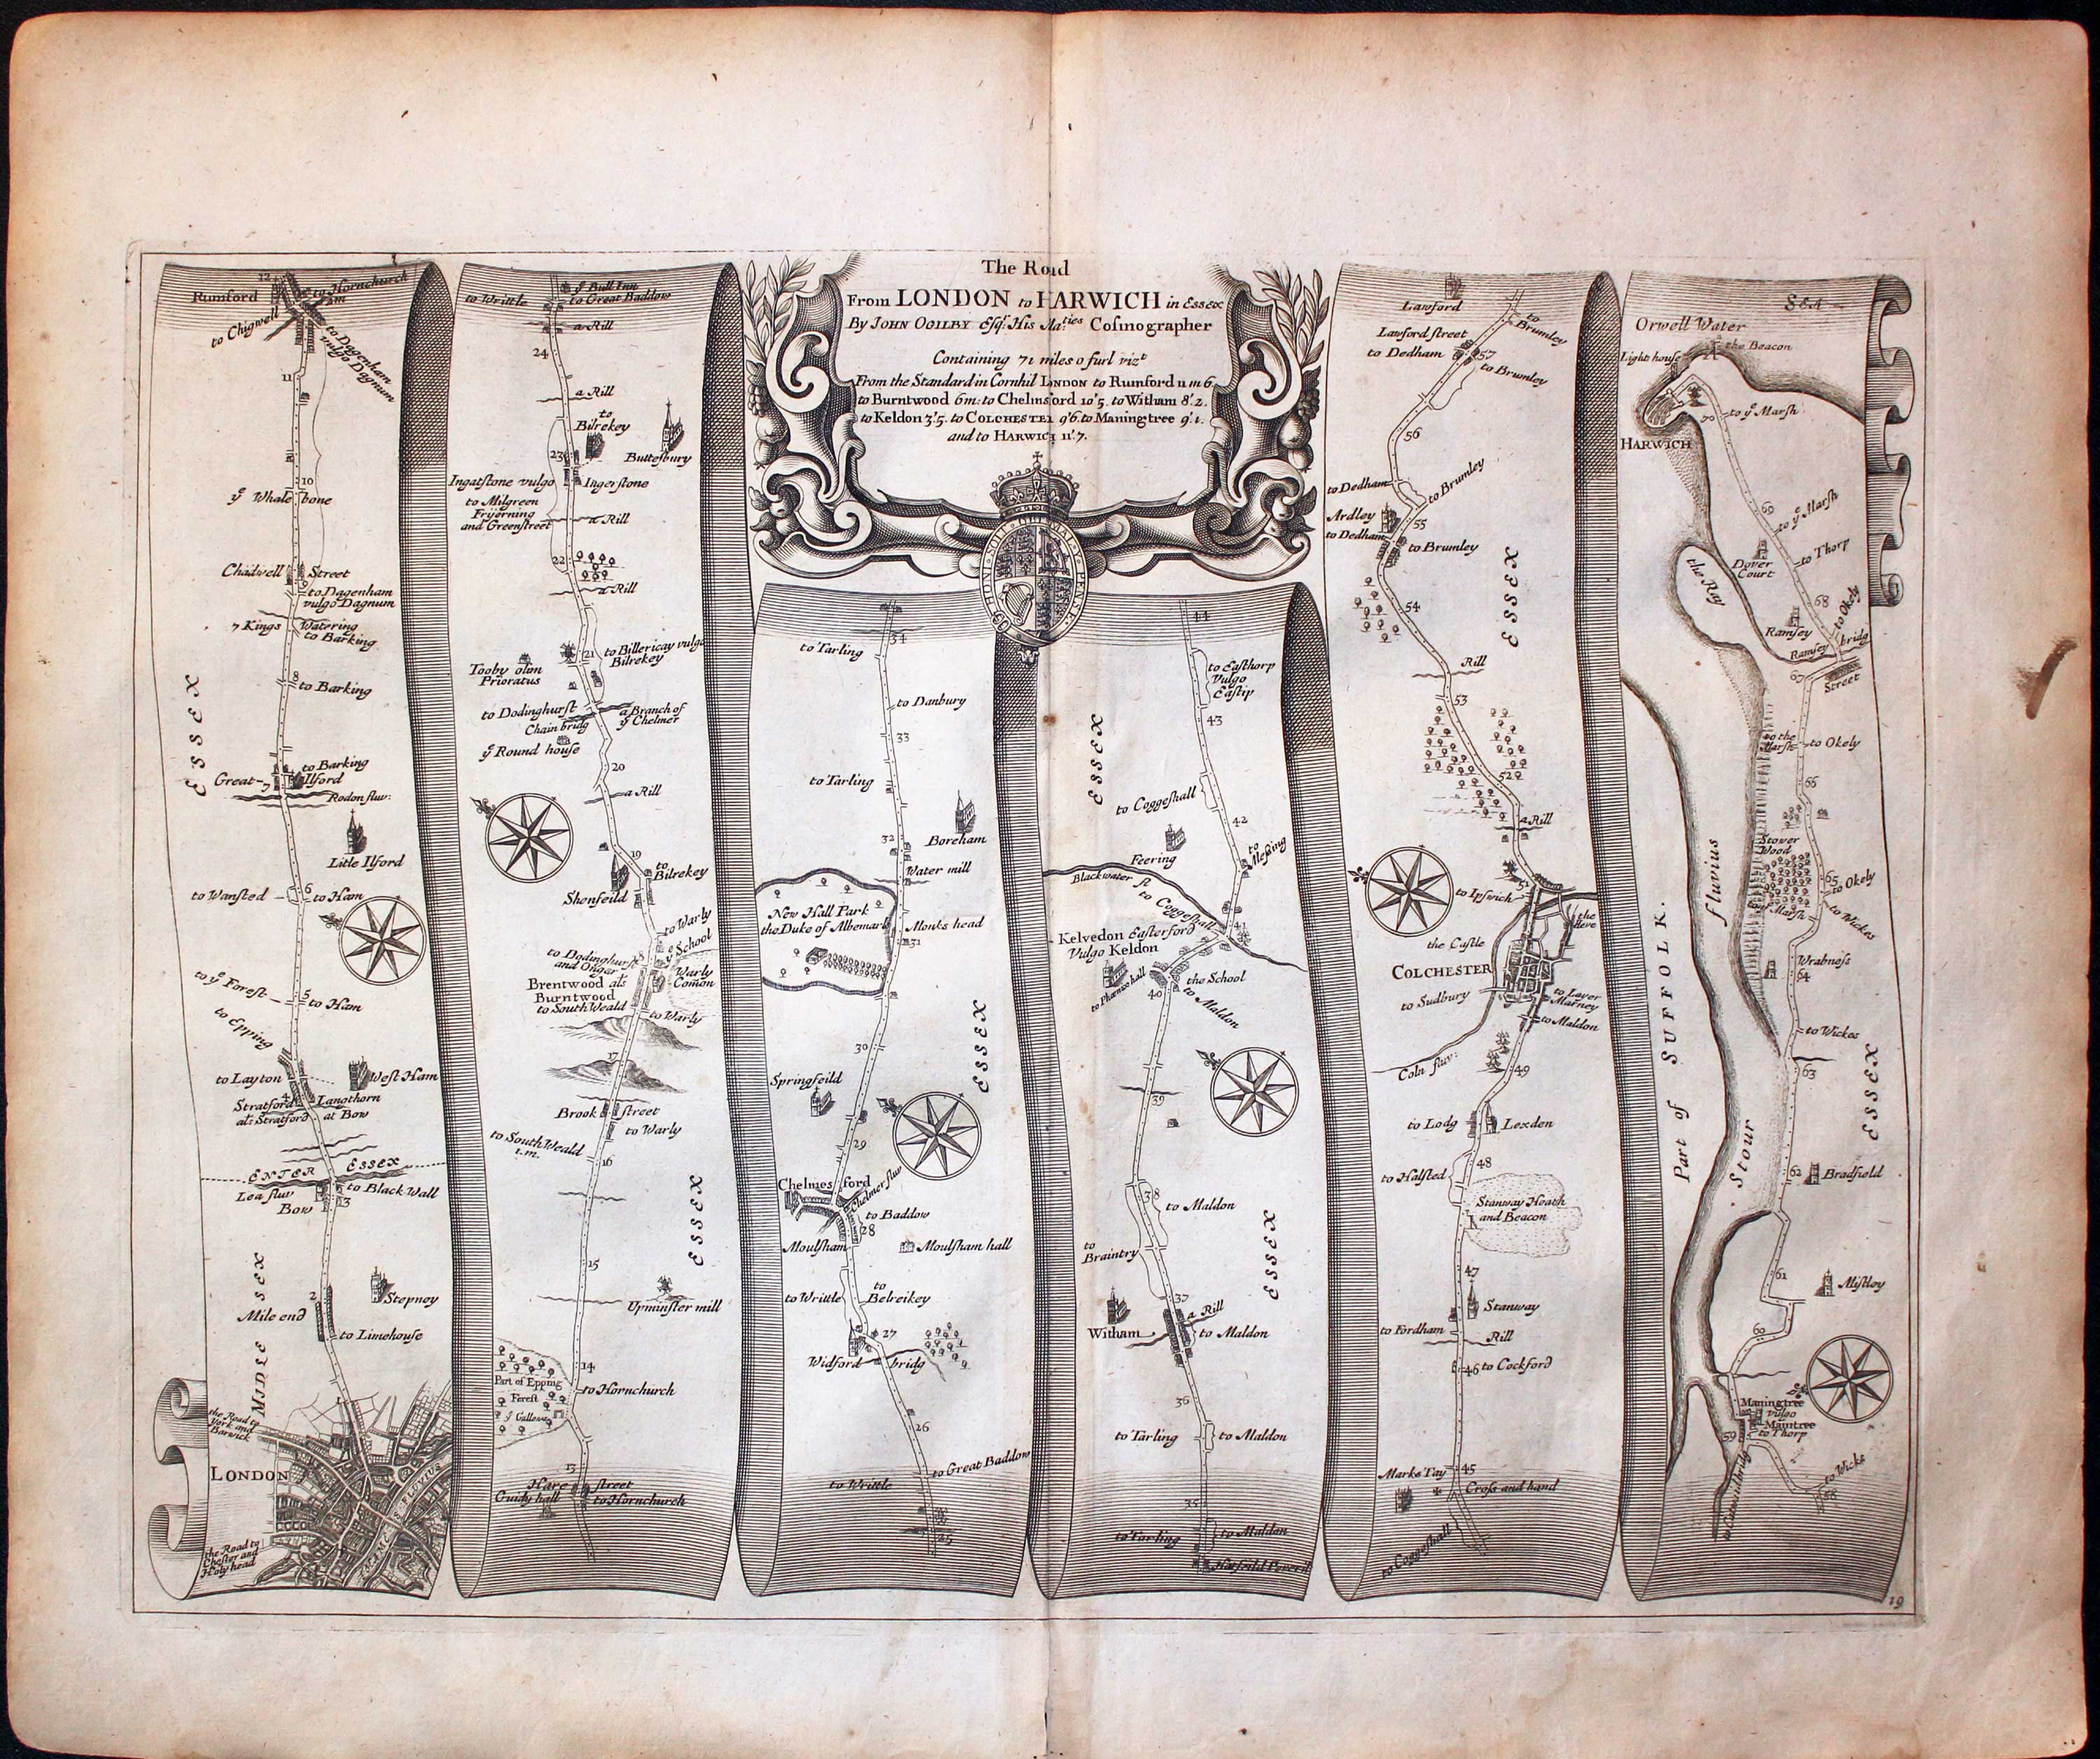 The Road
From LONDON to HARWICH in Essex
By JOHN OGILBY Esqr. His Maties Cosmographer
Containing 71 miles 0 furl vizt
From the Standard in Cornhil LONDON to Rumford 11 m 6
to Burntwood 6m: to Chelmsford 10'5. to Witham 8'2.
to Keldon 3'5. to COLCHESTER 9'6. to Maningtree 9'1.
and to HARWICH 11'7.
HONI SOIT QUI MAL Y PENSE
12
to Hornchurch
1m
Rumford
to Chigwell
to Dagenham
vulgo Dagnum
11
10
ye Whale bone
Chadwell Street
9
to Dagenham
vulgo Dagnum
7 Kings Watering
to Barking
8
to Barking
ESSEX
to Barking
Great Ilford
7
Rodon fluv:
Litle Ilford
6
to Wansted
to Ham
to ye Forest
5
to Ham
to Epping
to Layton
West Ham
4
Stratford Langthorn
als Stratford at Bow
ENTER ESSEX
Lea fluv
to Black Wall
Bow
3
MIDLESSEX
Stepney
2
Mile end
to Limehouse
1
the Road to
York and
Barwick
LONDON
THAMESIS FLUVIUS
the Road to
Chester and
Holy head
to Writtle
ye Bull Inn
to Great Baddow
a Rill
24
a Rill
to
Bilrekey
Buttesbury
23
Ingatstone vulgo
Ingerstone
to Milgreen
Fryerning
and Greenstreet
a Rill
22
a Rill
21
to Billericay vulgo
Bilrekey
Tooby olim
Prioratus
to Dodinghurst
a Branch of
ye Chelmer
Chain bridg
ye Round house
20
a Rill
19
to
Bilrekey
Shenfeild
to Warly
ye School
to Dodinghurst
and Ongar
Warly
Comon
Brentwood als
Burntwood
to South Weald
to Warly
17
Brook street
to Warly
to South Weald
1.m.
16
ESSEX
15
Upminster mill
14
Part of Epping
Forest
ye Gallows
to Hornchurch
13
Hare street
Guidy hall
to Hornchurch
34
to Tarling
to Danbury
33
to Tarling
32
Boreham
Water mill
New Hall Park
the Duke of Albemarls
Monks head
31
30
ESSEX
Springfeild
29
Chelmesford
Chelmer fluv
to Baddow
28
Moulsham
Moulsham hall
to Writtle
to
Belreikey
27
Widford bridg
26
to Great Baddow
to Writtle
25
44
to Easthorp
Vulgo
Eastip
43
ESSEX
to Coggeshall
42
to
Messing
Feering
Blackwater fl
to Coggeshall
41
Kelvedon Easterford
Vulgo Keldon
the School
40
to Maldon
39
38
to Maldon
to
Braintry
ESSEX
37
a Rill
Witham
to Maldon
36
to Tarling
to Maldon
35
to Tarling
to Maldon
Lawford
to
Brumley
Lawford street
to Dedham
57
to Brumley
56
to Dedham
to Brumley
Ardley
55
to Dedham
to Brumley
ESSEX
54
Rill
53
52
a Rill
51
to Ipswich
the
Heve
the Castle
COLCHESTER
to Sudbury
to Layer
Marney
to Maldon
Coln fluv:
49
to Lodg
Lexden
48
to Halsted
Stanway Heath
and Beacon
47
Stanway
to Fordham
Rill
46
to Cockford
Marks Tay
45
Cross and hand
to Coggeshall
SEA
Orwell Water
Lighthouse
the Beacon
70
to ye Marsh
HARWICH
69
to ye Marsh
the Ray
Dover
Court
to Thorp
68
to Okely
Ramsey
Ramsey bridg
67
Street
to the
Marsh
to Okely
66
Part of SUFFOLK.
Stour fluvius
Stower
Wood
65
to Okely
to ye Marsh
to Wickes
Wrabness
64
to Wickes
63
ESSEX
62
Bradfield
61
Mistley
60
Maningtree
vulgo
Maintree
to Thorp
59
to Wicks
58
19